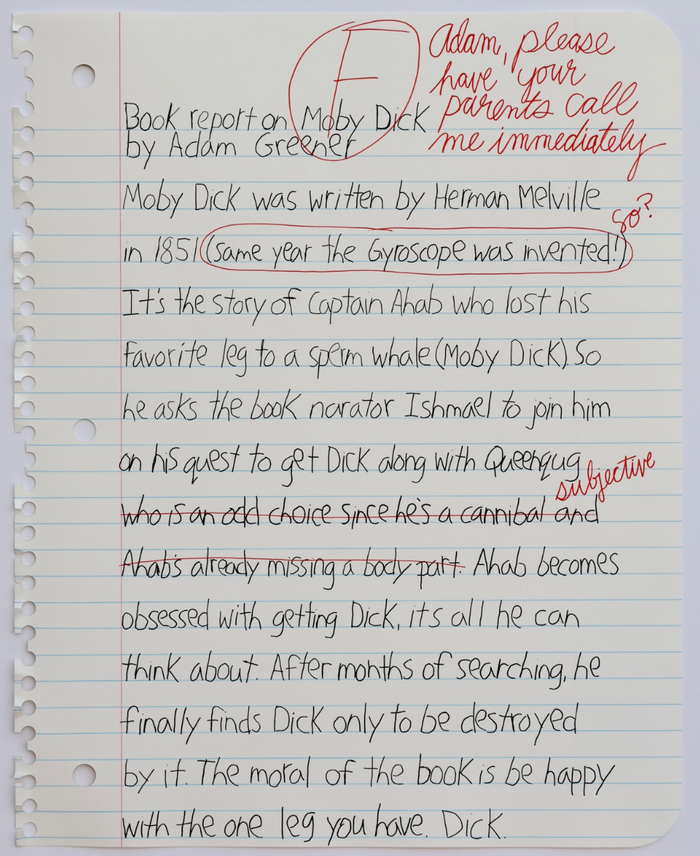 F
Adam, please
have your
parents call
me immediately
Book report on Moby Dick
by Adam Greener
Moby Dick was written by Herman Melville
so?
in 1851 (same year the Gyroscope was invented!)
It's the story of Captain Ahab who lost his
favorite leg to a sperm whale (Moby Dick). So
he asks the book narator Ishmael to join him
on his quest to get Dick along with Queehqug
subjective
who is an odd choice since he's a cannibal and
Ahab's already missing a body part. Ahab becomes
obsessed with getting Dick, it's all he can
think about. After months of searching, he
finally finds Dick only to be destroyed
by it. The moral of the book is be happy
with the one leg you have. Dick.